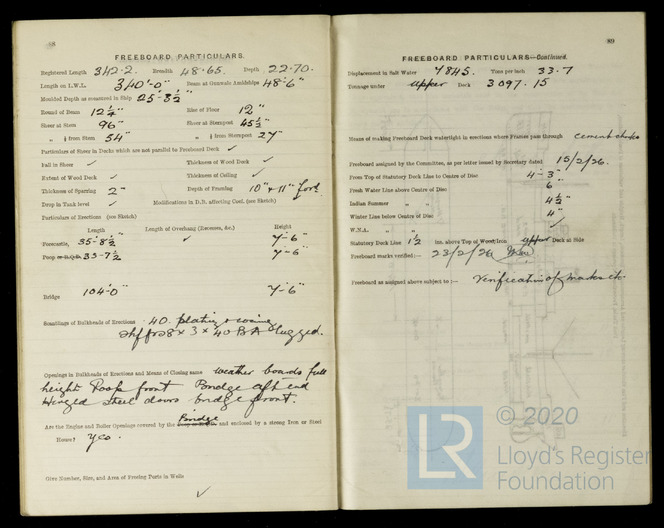 88
FREEBOARD PARTICULARS.
Registered Length 342.2. Breadth 48.65. Depth 22.70.
Length on L.W.L. 340'-0" Beam at Gunwale Amidships 48'-6"
Moulded Depth as measured in Ship 25'-3½"
Round of Beam 12¼" Rise of Floor 12"
Sheer at Stem 96" Sheer at Sternpost 45½"
" ⅛ from Stem 54" " ⅛ from Sternpost 27"
Particulars of Sheer in Decks which are not parallel to Freeboard Deck ✓
Fall in Sheer ✓ Thickness of Wood Deck ✓
Extent of Wood Deck ✓ Thickness of Ceiling ✓
Thickness of Sparring 2" Depth of Framing 10" & 11"
Drop in Tank level ✓ Modifications in D.B. affecting Coef. (see Sketch)
Particulars of Erections (see Sketch)
Length Length of Overhang (Recesses, &c.) Height
Forecastle, 35-8½ ✓ 7'-6"
Poop or R.Q.D. 33-7½ 7'-6"
Bridge 104'-0" 7'-6"
Scantlings of Bulkheads of Erections 40. plating & coaming
8 x 3 x 40 BA lugged.
Openings in Bulkheads of Erections and Means of Closing same weather boards full
height Poop front Bridge aft end
Hinged steel doors bridge front.
Are the Engine and Boiler Openings covered by the Bridge and enclosed by a strong Iron or Steel
House? yes.
Give Number, Size, and Area of Freeing Ports in Wells
✓
89
FREEBOARD PARTICULARS—Continued.
Displacement in Salt Water 7845. Tons per inch 33.7
Tonnage under upper Deck 3097.15
Means of making Freeboard Deck watertight in erections where Frames pass through cement chocks
Freeboard assigned by the Committee, as per letter issued by Secretary dated 15/2/26.
From Top of Statutory Deck Line to Centre of Disc 4-3"
Fresh Water Line above Centre of Disc 6"
Indian Summer " " 4½"
Winter Line below Centre of Disc 4"
W.N.A. " " ✓
Statutory Deck Line 1½ ins. above Top of Wood/Iron upper Deck at Side
Freeboard marks verified:— 23/2/26
Freeboard as assigned above subject to:— Verification of marks etc.
© 2020
LR
Lloyd's Register
Foundation